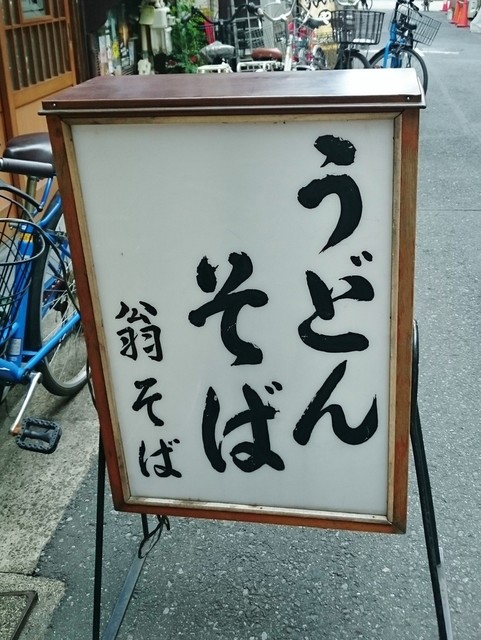 うどん
そば
翁そば